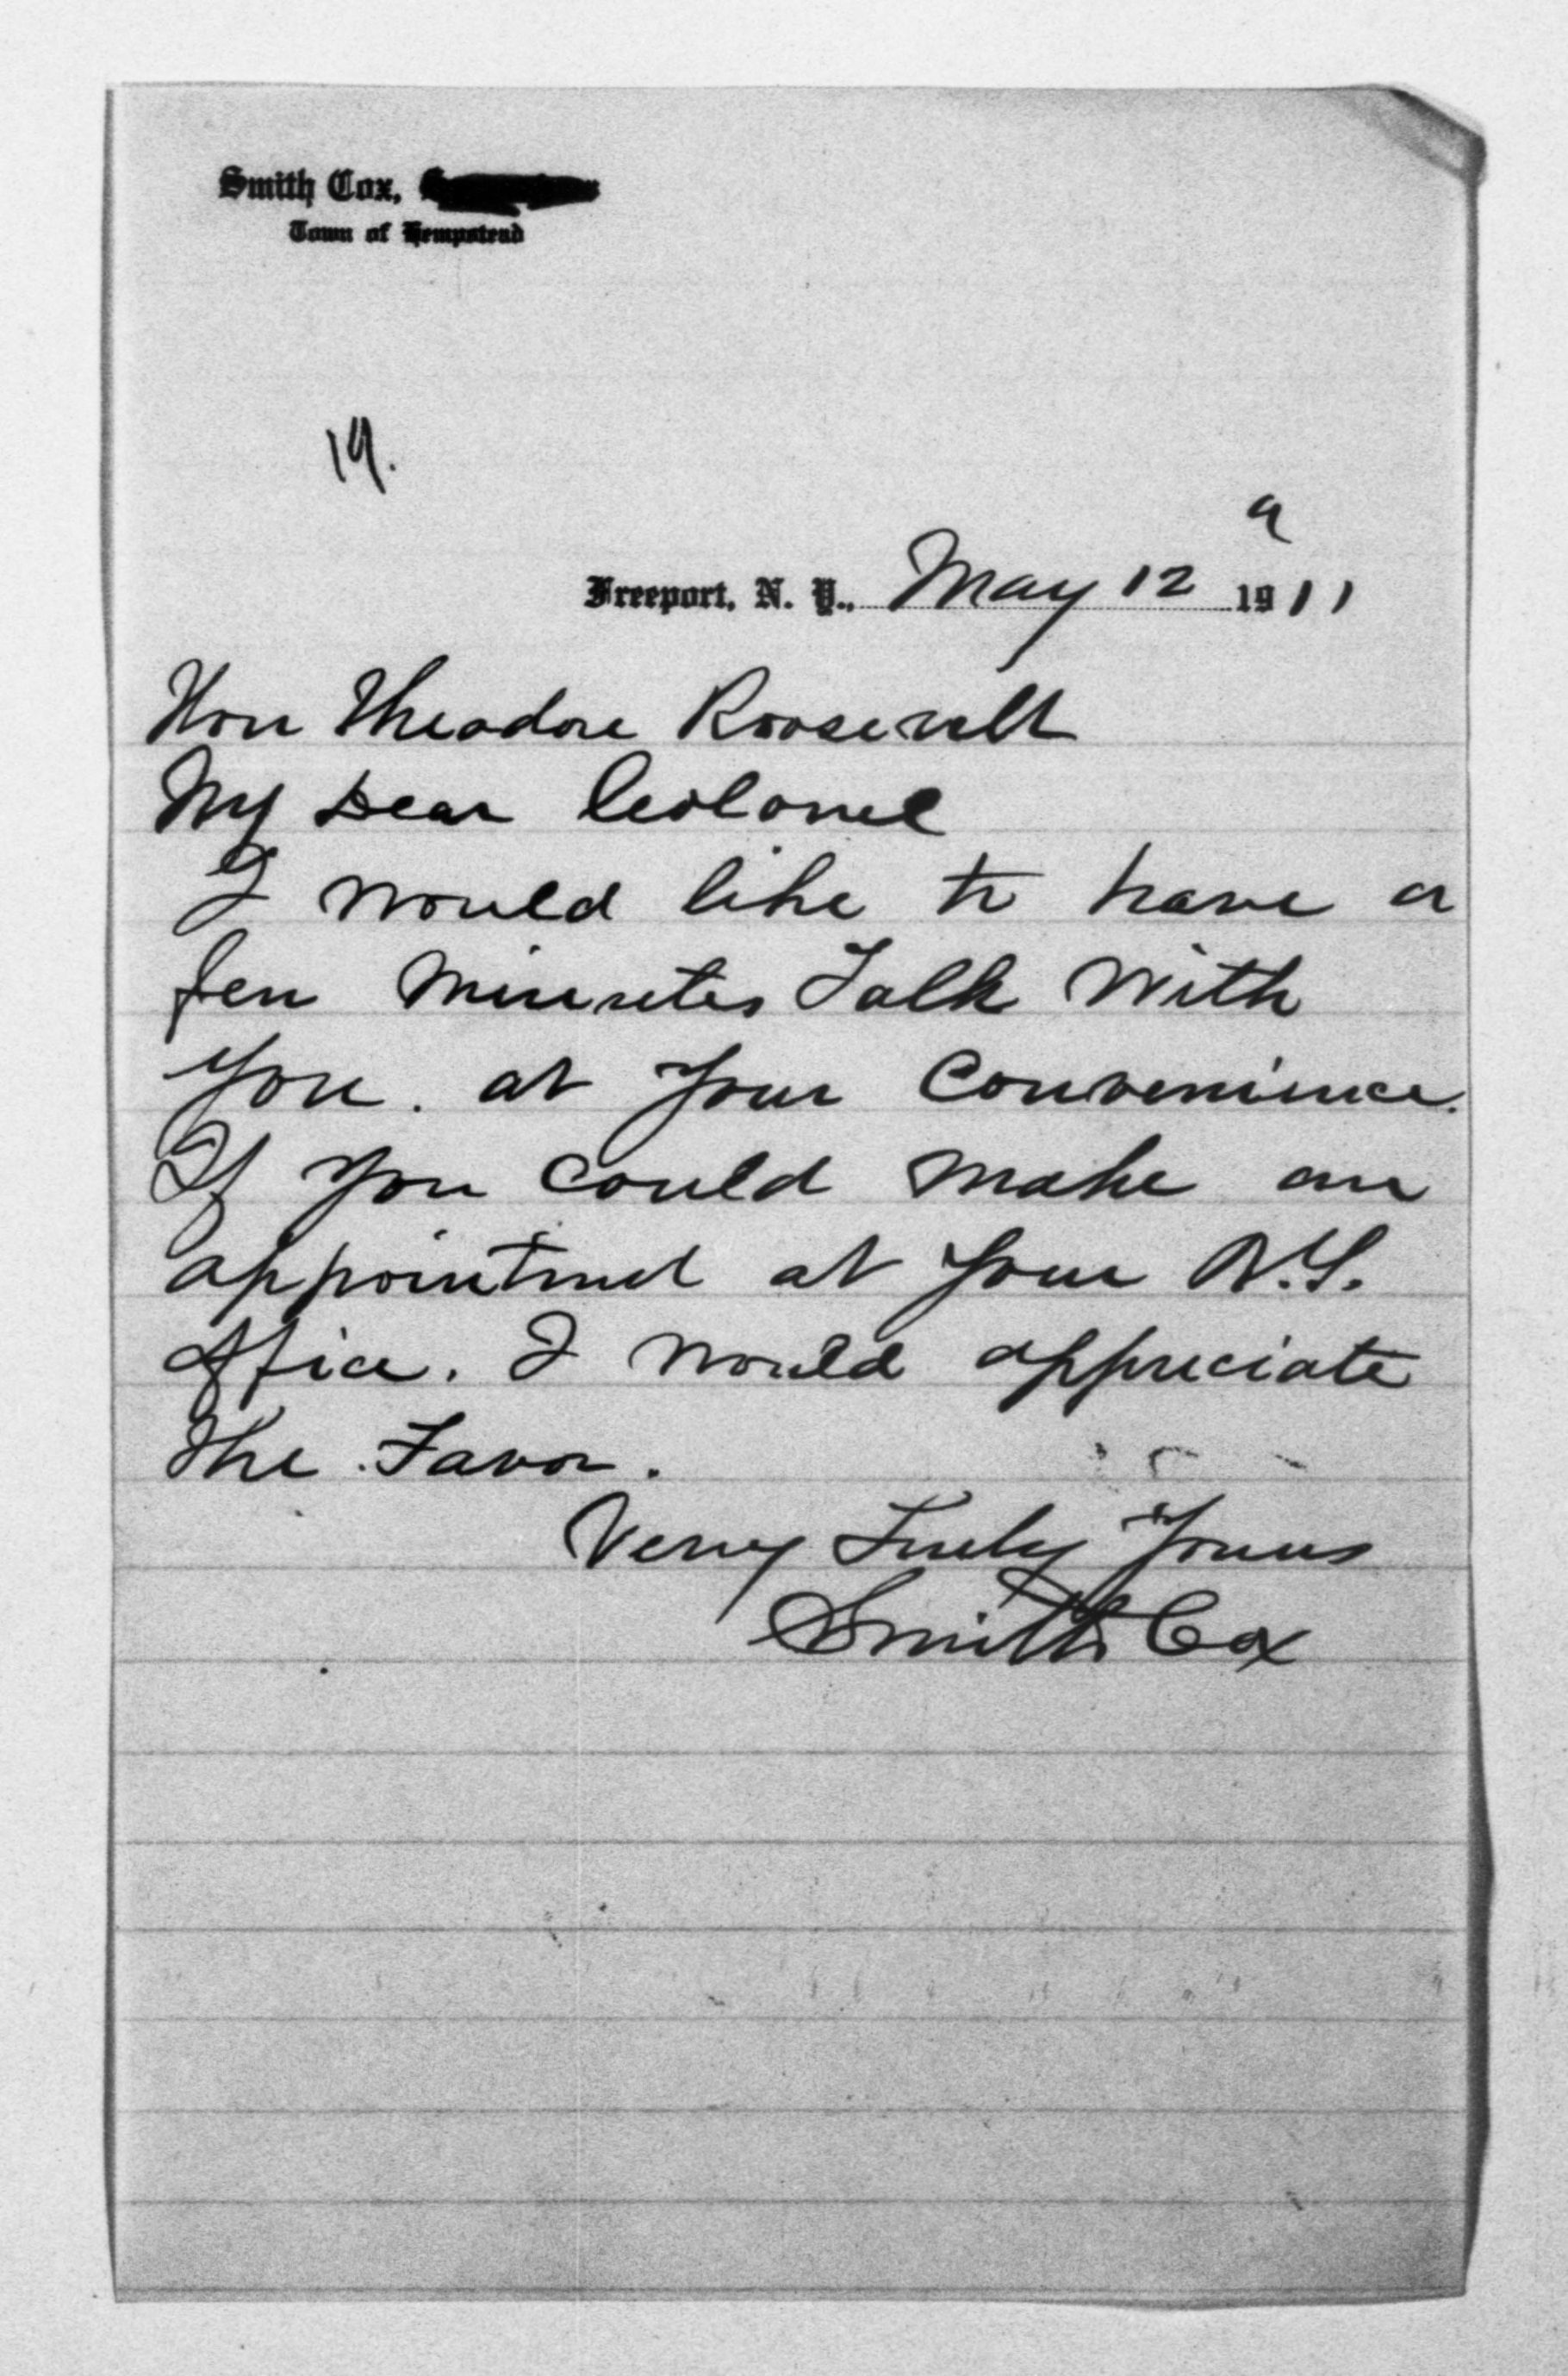 Smith Cox,
Town of Hempstead
19.
a
Freeport, N. Y., May 12 1911
Hon Theodore Roosevelt
My Dear Colonel
I would like to have a
few minutes Talk With
you. at your Convenience.
If you could make an
appointment at your N.Y.
office. I would appreciate
The Favor.
Very Truly Yours
Smith Cox